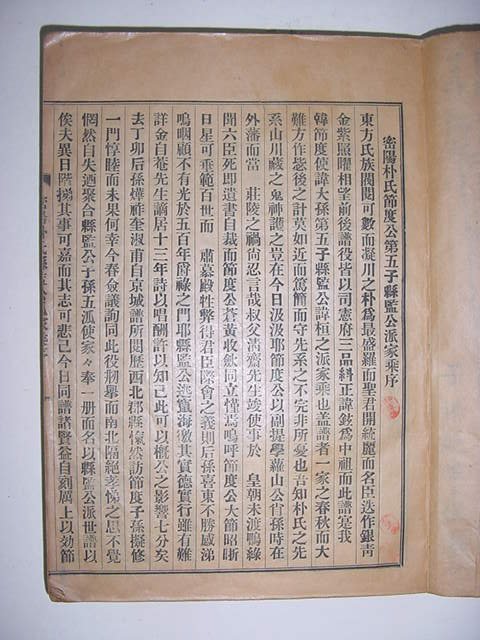 密陽朴氏節度公第五子縣監公派家乘序
東方氏族閥閱可數而凝川之朴爲最盛羅而聖君開統麗而名臣迭作銀靑
金紫照曜相望前後譜役皆以司憲府三品糾正諱鉉爲中祖而此譜寔我
韓節度使諱大孫第五子縣監公諱桓之派家乘也盖譜者一家之春秋而大
難方作毖後之計莫如近而篤簡而守先系之不完非所憂也吾知朴氏之先
系山川藏之鬼神護之豈在今日汲汲耶節度公以副提學蘿山公肖孫時在
外藩而當 莊陵之禍尙忍言哉叔父淸齋先生竣使事於 皇朝未渡鴨綠
聞六臣死即遺書自裁而節度公蒼黃收歛同立慬焉嗚呼節度公大節昭晣
日星可垂範百世而 肅墓殿牲幣得君臣際會之義則后孫喜東不勝感涕
嗚咽顧不有光於五百年爵祿之門耶縣監公逃竄海徼其實德實行雖有難
詳金自菴先生謫居十三年詩以唱酬許以知己此可以槪公之影響七分矣
去丁卯后孫 祚奎淑甫自京城譜所閱歷西北郡縣 然訪節度子孫擬修
一門惇睦而未果何幸今春僉議詢同此役刱擧而南北隔絶孝悌之思不覺
惘然自失迺聚合縣監公子孫五派使家々奉一册而名以縣監公派世譜以
俟夫異日階梯其事可嘉而其志可悲已今日同譜諸賢益自刻厲上以効節